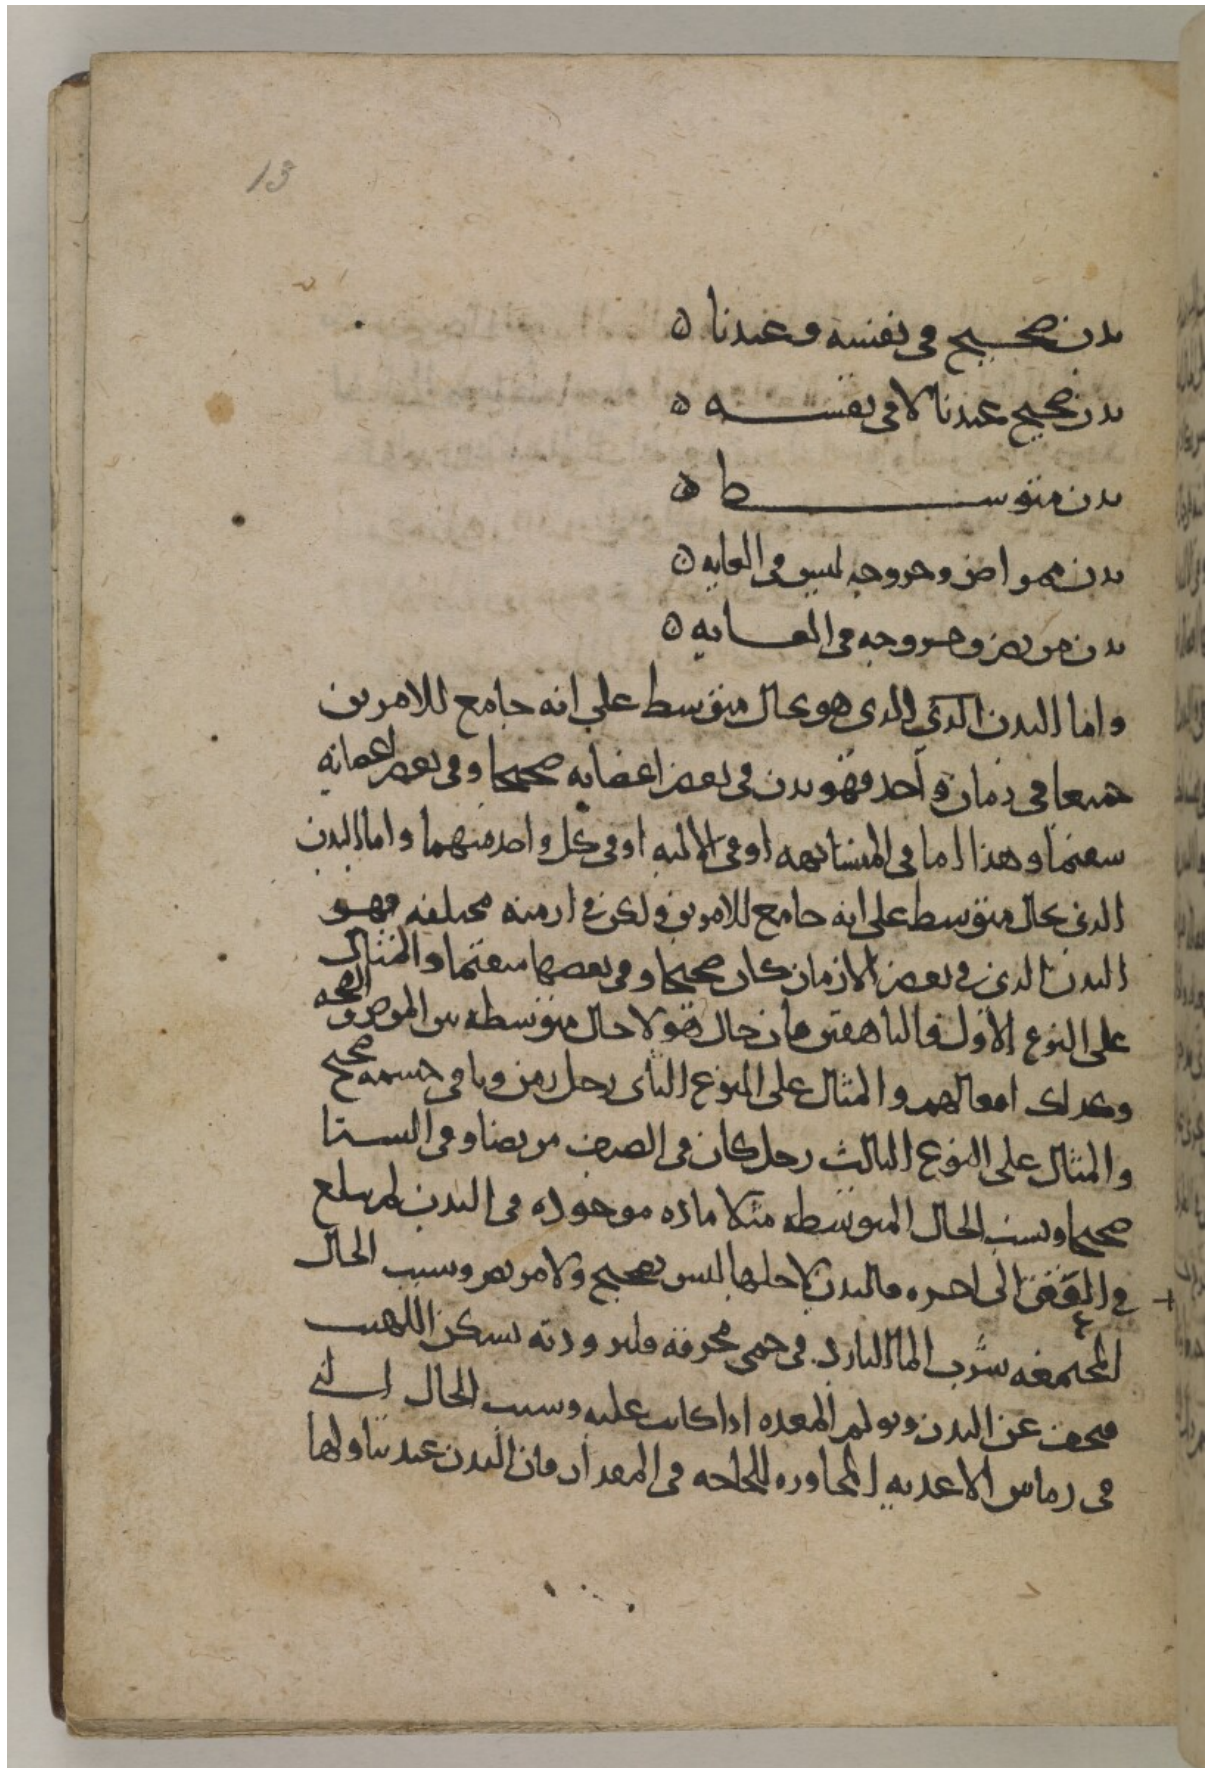 13
بدن صحيح في نفسه وعندنا ه
بدن صحيح عندنا لا في نفسه ه
بدن متوسط ه
بدن ممراض وخروجه ليس في الغايه ه
بدن مريض وخروجه في الغايه ه
واما البدن الذي هو بحال متوسط على انه جامع للامرين
جميعا في زمان واحد فهو بدن في بعض اعضايه صحيحا وفي بعض اعضايه
سقيما وهذا اما في المتشابهه او في الاليه او في كل واحد منهما واما البدن
الذي بحال متوسط على انه جامع للامرين ولكن في ازمنه مختلفه فهو
البدن الذي في بعض الازمان كان صحيحا وفي بعضها سقيما والمثال
على النوع الاول فالناقهين فان حال هولا حال متوسطه بين المرض والصحه
وكذلك افعالهم والمثال على النوع الثاني رجل زمن وباقي جسمه صحيح
والمثال على النوع الثالث رجل كان في الصيف مريضا وفي الشتا
صحيحا وسبب الحال المتوسطه مثلا ماده موجوده في البدن لم يبلغ
في العفن الى اخره فالبدن لاجلها ليس بصحيح ولا مريض وسبب الحال
المجتمعه شرب الما البارد في حمى محرقه فلبرودته يسكن اللهيب
فيخف عن البدن ويولم المعده اذا كانت عليه وسبب الحال التي
في زمانين الاغذيه المجاوره للحاجه في المقدار فان البدن عند تناولها